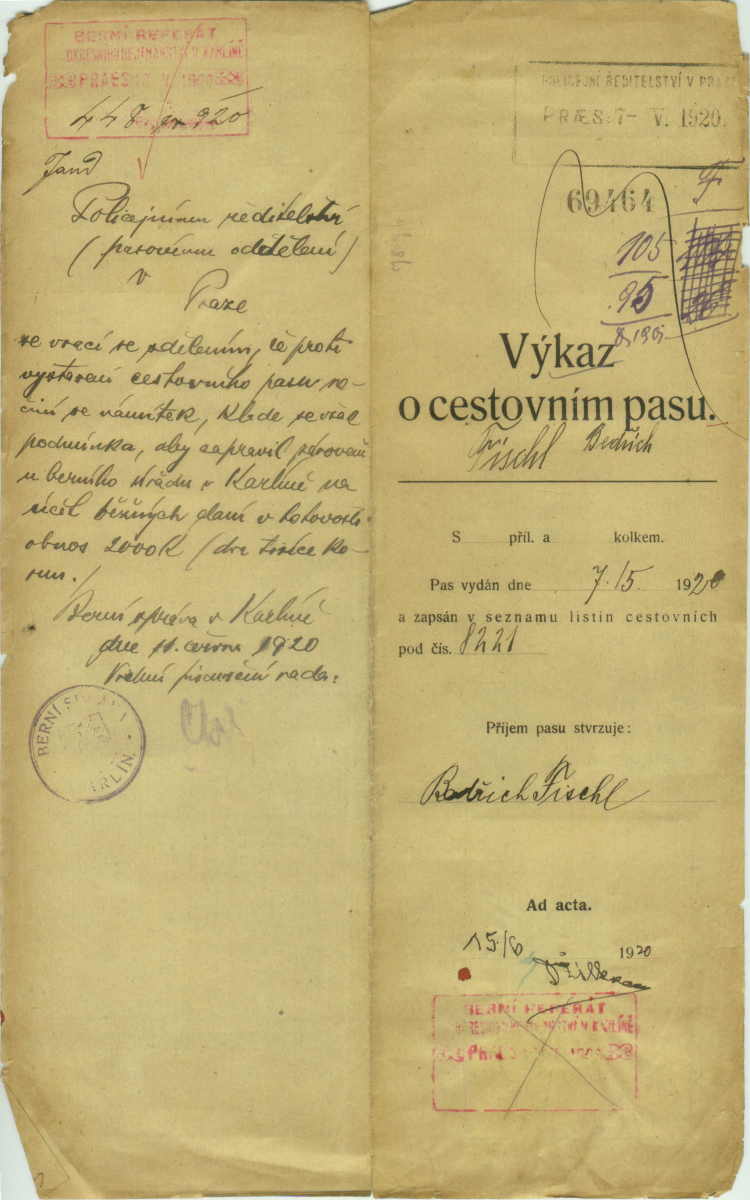 BERNÍ REFERÁT
OKRESNÍHO HEJTMANSTVÍ V KARLÍNĚ
PRAES 1920
448 920
Policejnímu ředitelství
(pasovnímu oddělení)
v
Praze
se vrací se sdělením, že proti
vystavení cestovního pasu ne-
činí se námitek, klade se však
podmínka, aby zapravil zároveň
u berního úřadu v Karlíně na
účet běžných daní v hotovosti
obnos 2000 K (dva tisíce ko-
run.)
Berní správa v Karlíně
dne 11. června 1920
Vrchní finanční rada:
BERNÍ SPRÁVA
KARLÍN.
POLICEJNÍ ŘEDITELSTVÍ V PRAZE
PRÆS: 7- V. 1920.
69464
F
105
95
Výkaz
o cestovním pasu.
Fischl Bedřich
S příl. a kolkem.
Pas vydán dne 7./5. 1920
a zapsán v seznamu listin cestovních
pod čís. 8221
Příjem pasu stvrzuje:
Bedřich Fischl
Ad acta.
15./6 1920
BERNÍ REFERÁT
OKRESNÍHO HEJTMANSTVÍ V KARLÍNĚ